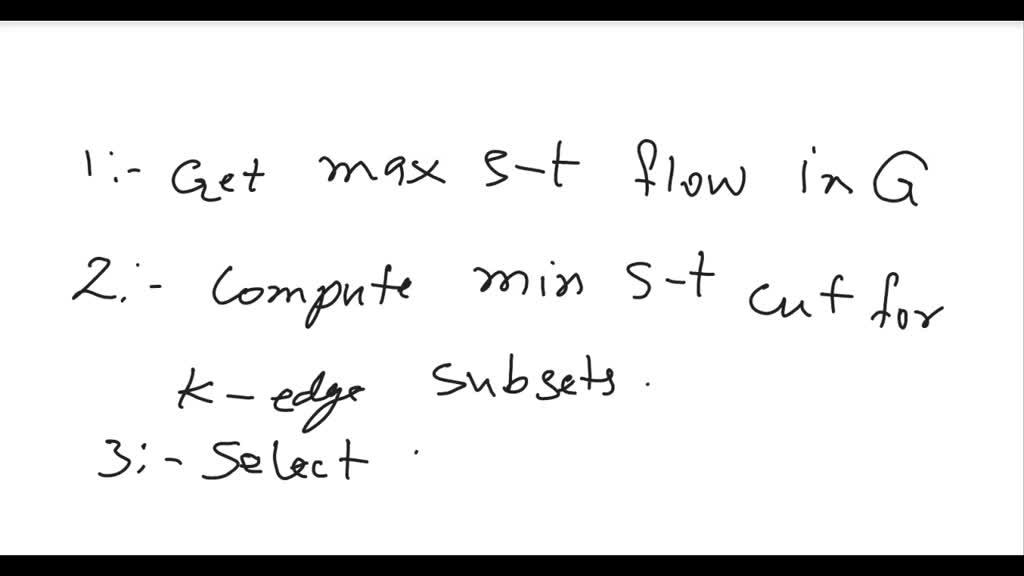 1:- Get max s-t flow in G
2:- Compute min s-t cut for
k-edge subsets.
3:- Select .